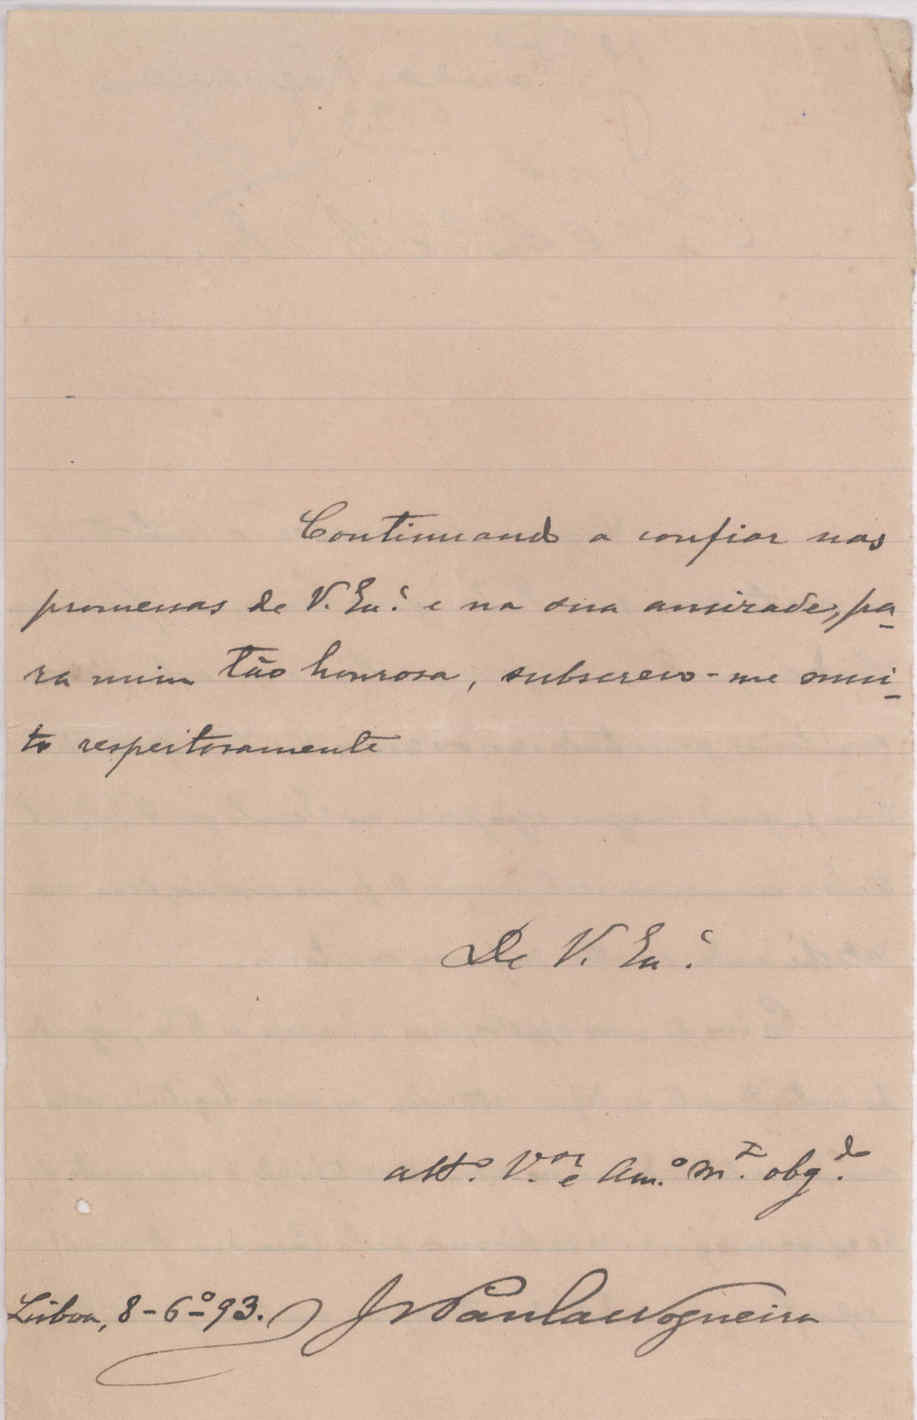 Continuando a confiar nas
promessas de V. Exª. e na sua amizade, pa-
ra mim tão honrosa, subscrevo-me mui-
to respeitosamente
De V. Exª.
attº. V.or e Am.º m.to obg.do
Lisboa, 8-6º-93. J V Paula Nogueira